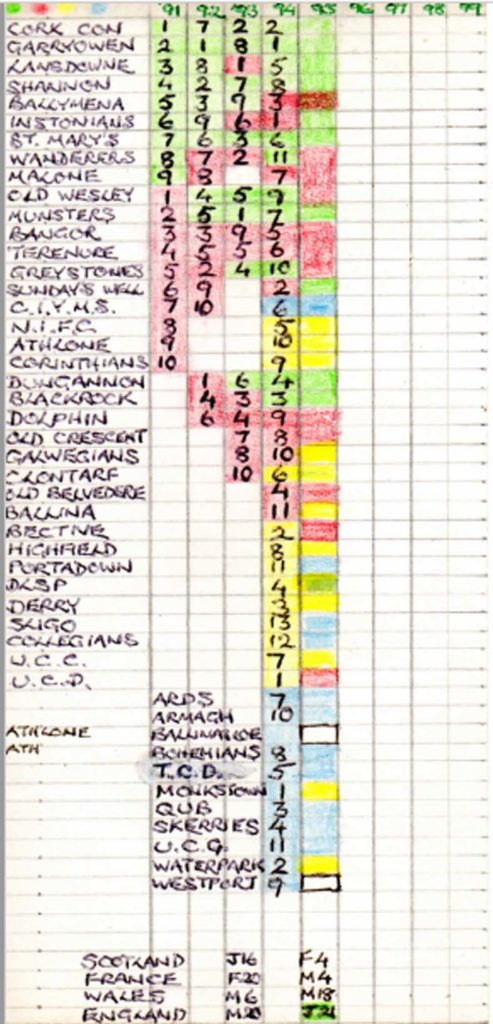 '91 92 '93 94 95 96 97 98 99
CORK CON 1 7 2 2
GARRYOWEN 2 1 8 1
LANSDOWNE 3 8 1 5
SHANNON 4 2 7 8
BALLYMENA 5 3 9 3
INSTONIANS 6 9 6 1
ST. MARY'S 7 6 3 6
WANDERERS 8 7 2 11
MALONE 9 8 7
OLD WESLEY 1 4 5 9
MUNSTERS 2 5 1 7
BANGOR 3 3 9 5
TERENURE 4 5 5 6
GREYSTONES 5 2 4 10
SUNDAY'S WELL 6 9 2
C.I.Y.M.S. 7 10 6
N.I.F.C. 8 5
ATHLONE 9 10
CORINTHIANS 10 9
DUNGANNON 1 6 4
BLACKROCK 4 3 3
DOLPHIN 6 4 9
OLD CRESCENT 7 8
GALWEGIANS 8 10
CLONTARF 10 6
OLD BELVEDERE 4
BALLINA 11
BECTIVE 2
HIGHFIELD 8
PORTADOWN 11
DLSP 4
DERRY 3
SLIGO 13
COLLEGIANS 12
U.C.C. 7
U.C.D. 1
ARDS 7
ARMAGH 10
ATHLONE BALLINASLOE
ATH BOHEMIANS 8
T.C.D. 5
MONKSTOWN 1
QUB 3
SKERRIES 4
U.C.G. 11
WATERPARK 2
WESTPORT 9
SCOTLAND J16 F4
FRANCE F20 M4
WALES M6 M18
ENGLAND M20 J21